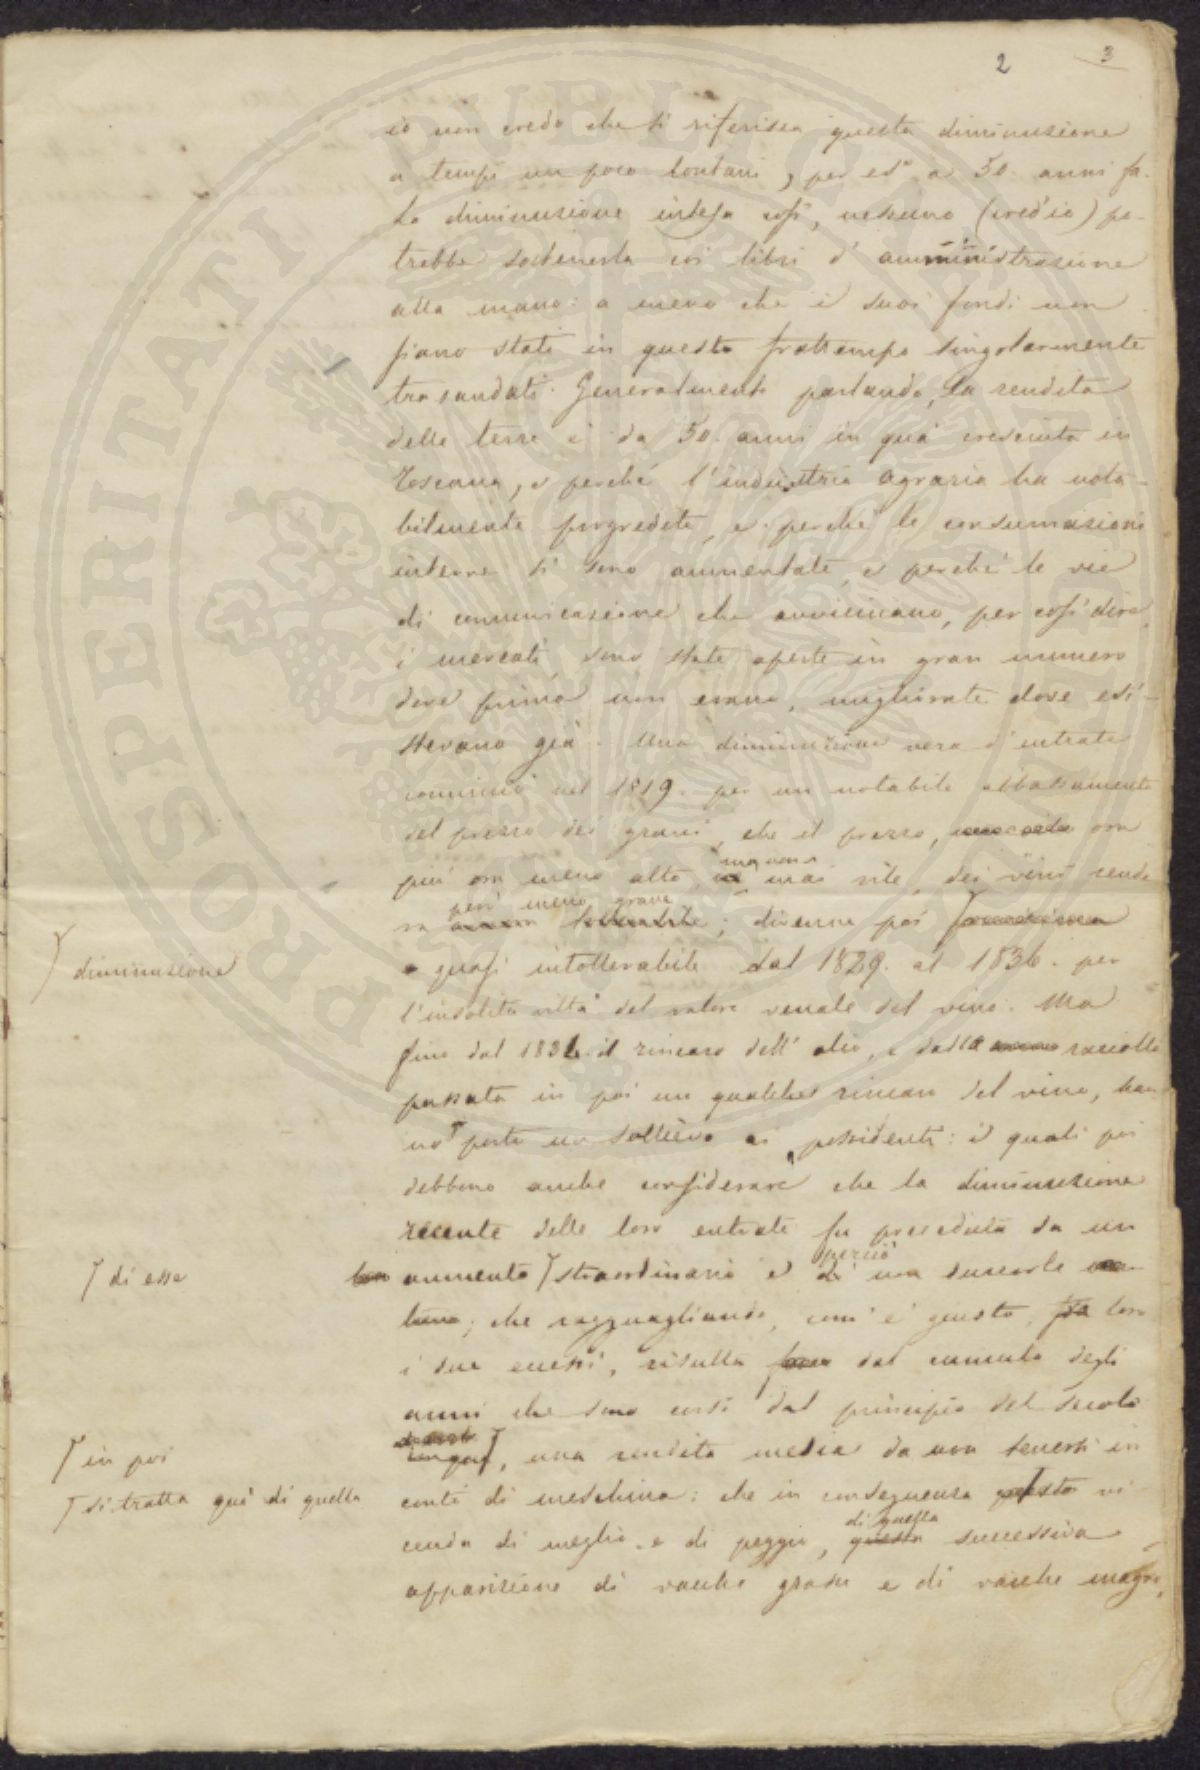 2 3
io non credo che si riferisca questa diminuzione
a tempi un poco lontani, per es° a 50. anni fa.
La diminuzione intesa così, nessuno (cred'io) po-
trebbe sostenerla coi libri d'amministrazione
alla mano: a meno che i suoi fondi non
siano stati in questo frattempo singolarmente
trasandati. Generalmente parlando, la rendita
delle terre è da 50. anni in quà cresciuta in
Toscana, e perché l'industria agraria ha nota-
bilmente progredito, e perché le consumazioni
interne si sono aumentate, e perché le vie
di comunicazione che avvicinano, per così dire,
i mercati sono state aperte in gran numero
dove prima non erano, migliorate dove esi-
stevano già. Una diminuzione vera d'entrate
cominciò nel 1819. per un notabile abbassamento
del prezzo dei grani, che il prezzo, ora
più ora meno alto, ma non mai vile, dei vini rende
va però meno grave; divenne poi
diminuzione
e quasi intollerabile dal 1829. al 1836. per
l'insolita viltà del valore venale del vino. Ma
fino dal 1836. il rincaro dell'olio, e dalla raccolta
passata in poi un qualche rincaro del vino, han
no porto un sollievo ai possidenti: i quali poi
debbono anche considerare che la diminuzione
recente delle loro entrate fu preceduta da un
di esse
aumento straordinario e perciò da non
; che ragguagliando, com'è giusto, fra loro
i due eccessi, risulta dal cumulo degli
anni che sono corsi dal principio del secolo
in poi
, una rendita media da non tenersi in
si tratta quì di quella
conto di meschina: che in conseguenza questa vi-
cenda di meglio e di peggio, di quella questa successiva
apparizione di vacche grasse e di vacche magre,